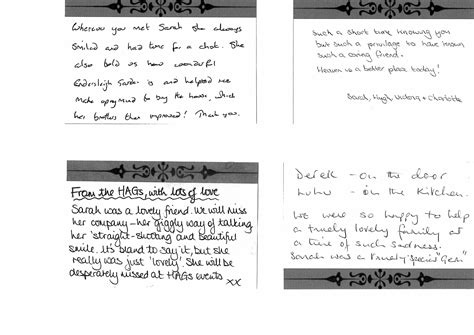 Wherever you met Sarah she always
smiled and had time for a chat. She
also told us how wonderful
Gardens is and helped me
make up my mind to buy the house, which
her brothers then improved! Thank you.
Such a short time knowing you
but such a privilege to have known
such a caring friend.
Heaven is a better place today!
Sarah, Hugh, Victoria + Charlotte
From the HAGs, with lots of love
Sarah was a lovely friend. We will miss
her company - her giggly way of talking
her straight-shooting and beautiful
smile. It's bland to say it, but she
really was just 'lovely'. She will be
desperately missed at HAGs events
xx
Derek - on the door
Lulu - in the Kitchen.
We were so happy to help
a truly lovely family at
a time of such sadness.
Sarah was a truly "special Gem"